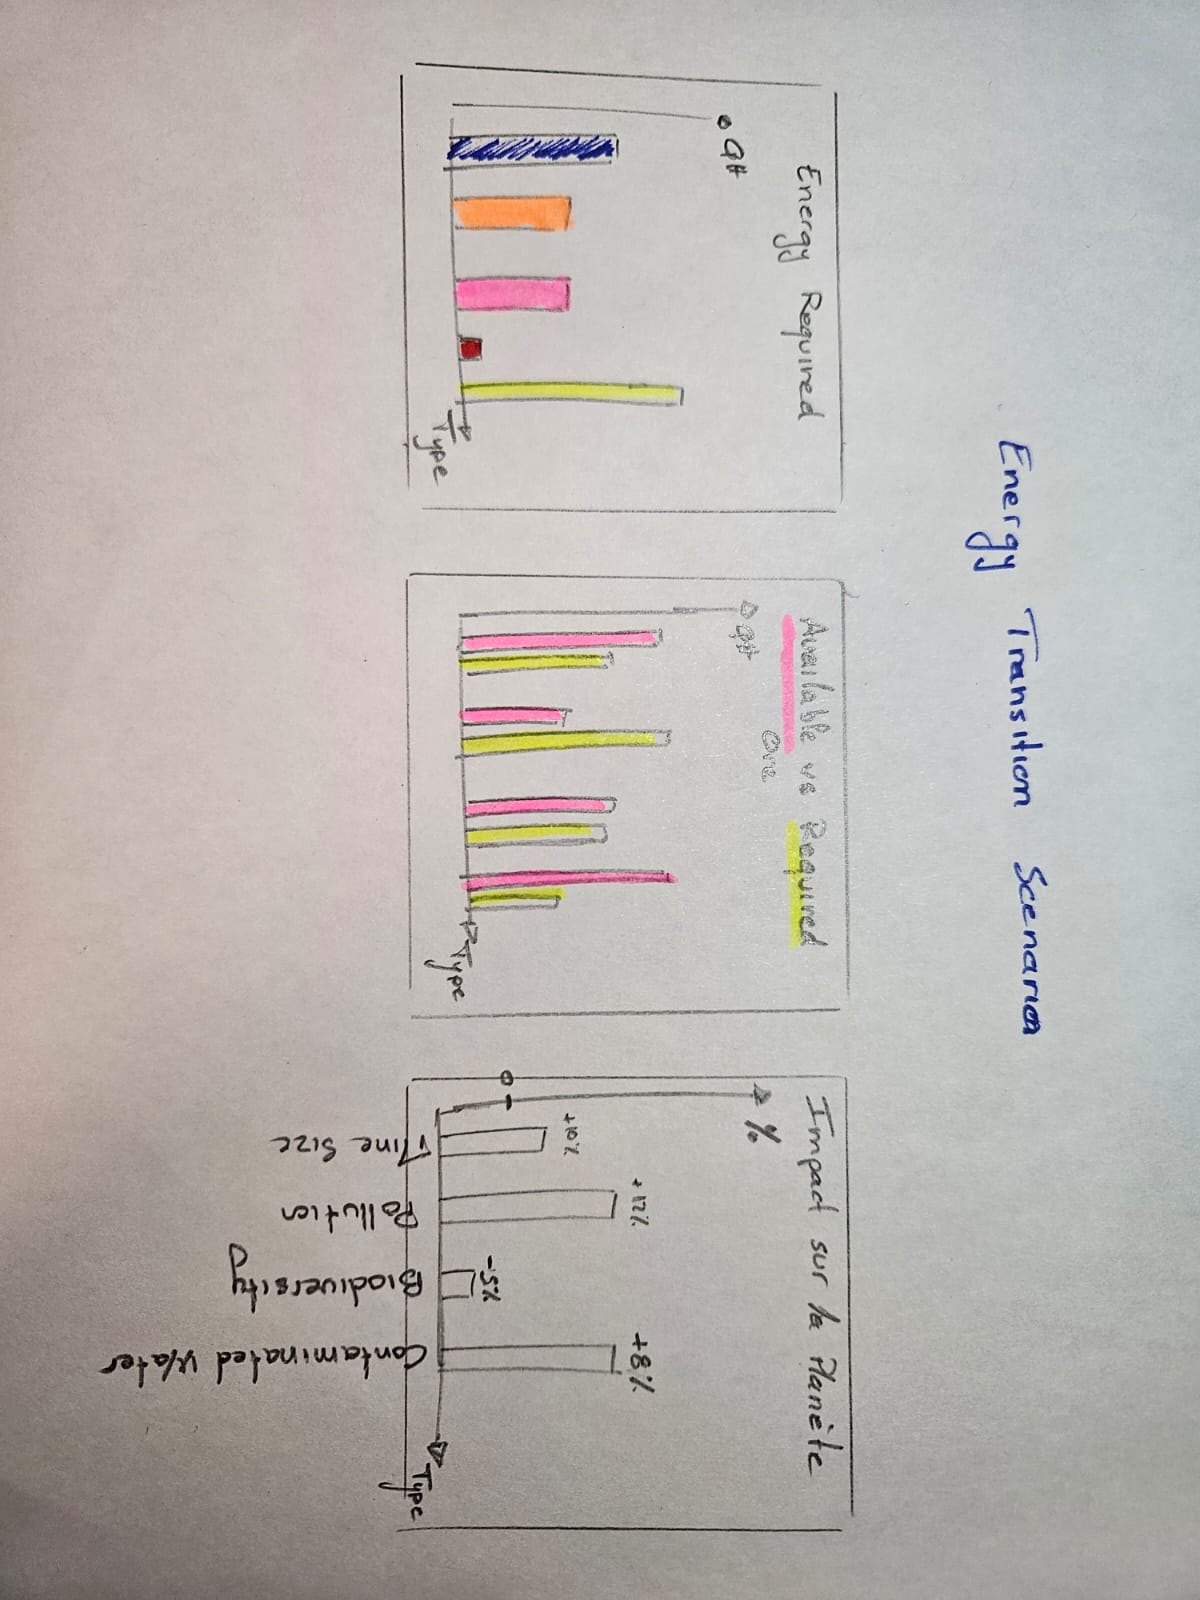 Energy Transition Scenarios
Energy Required
QH
Type
Available vs Required
Core
QH
Type
Impact sur la Planète
%
0
+10%
+12%
-5%
+8%
Mine Size
Pollution
Biodiversity
Contaminated Water
Type